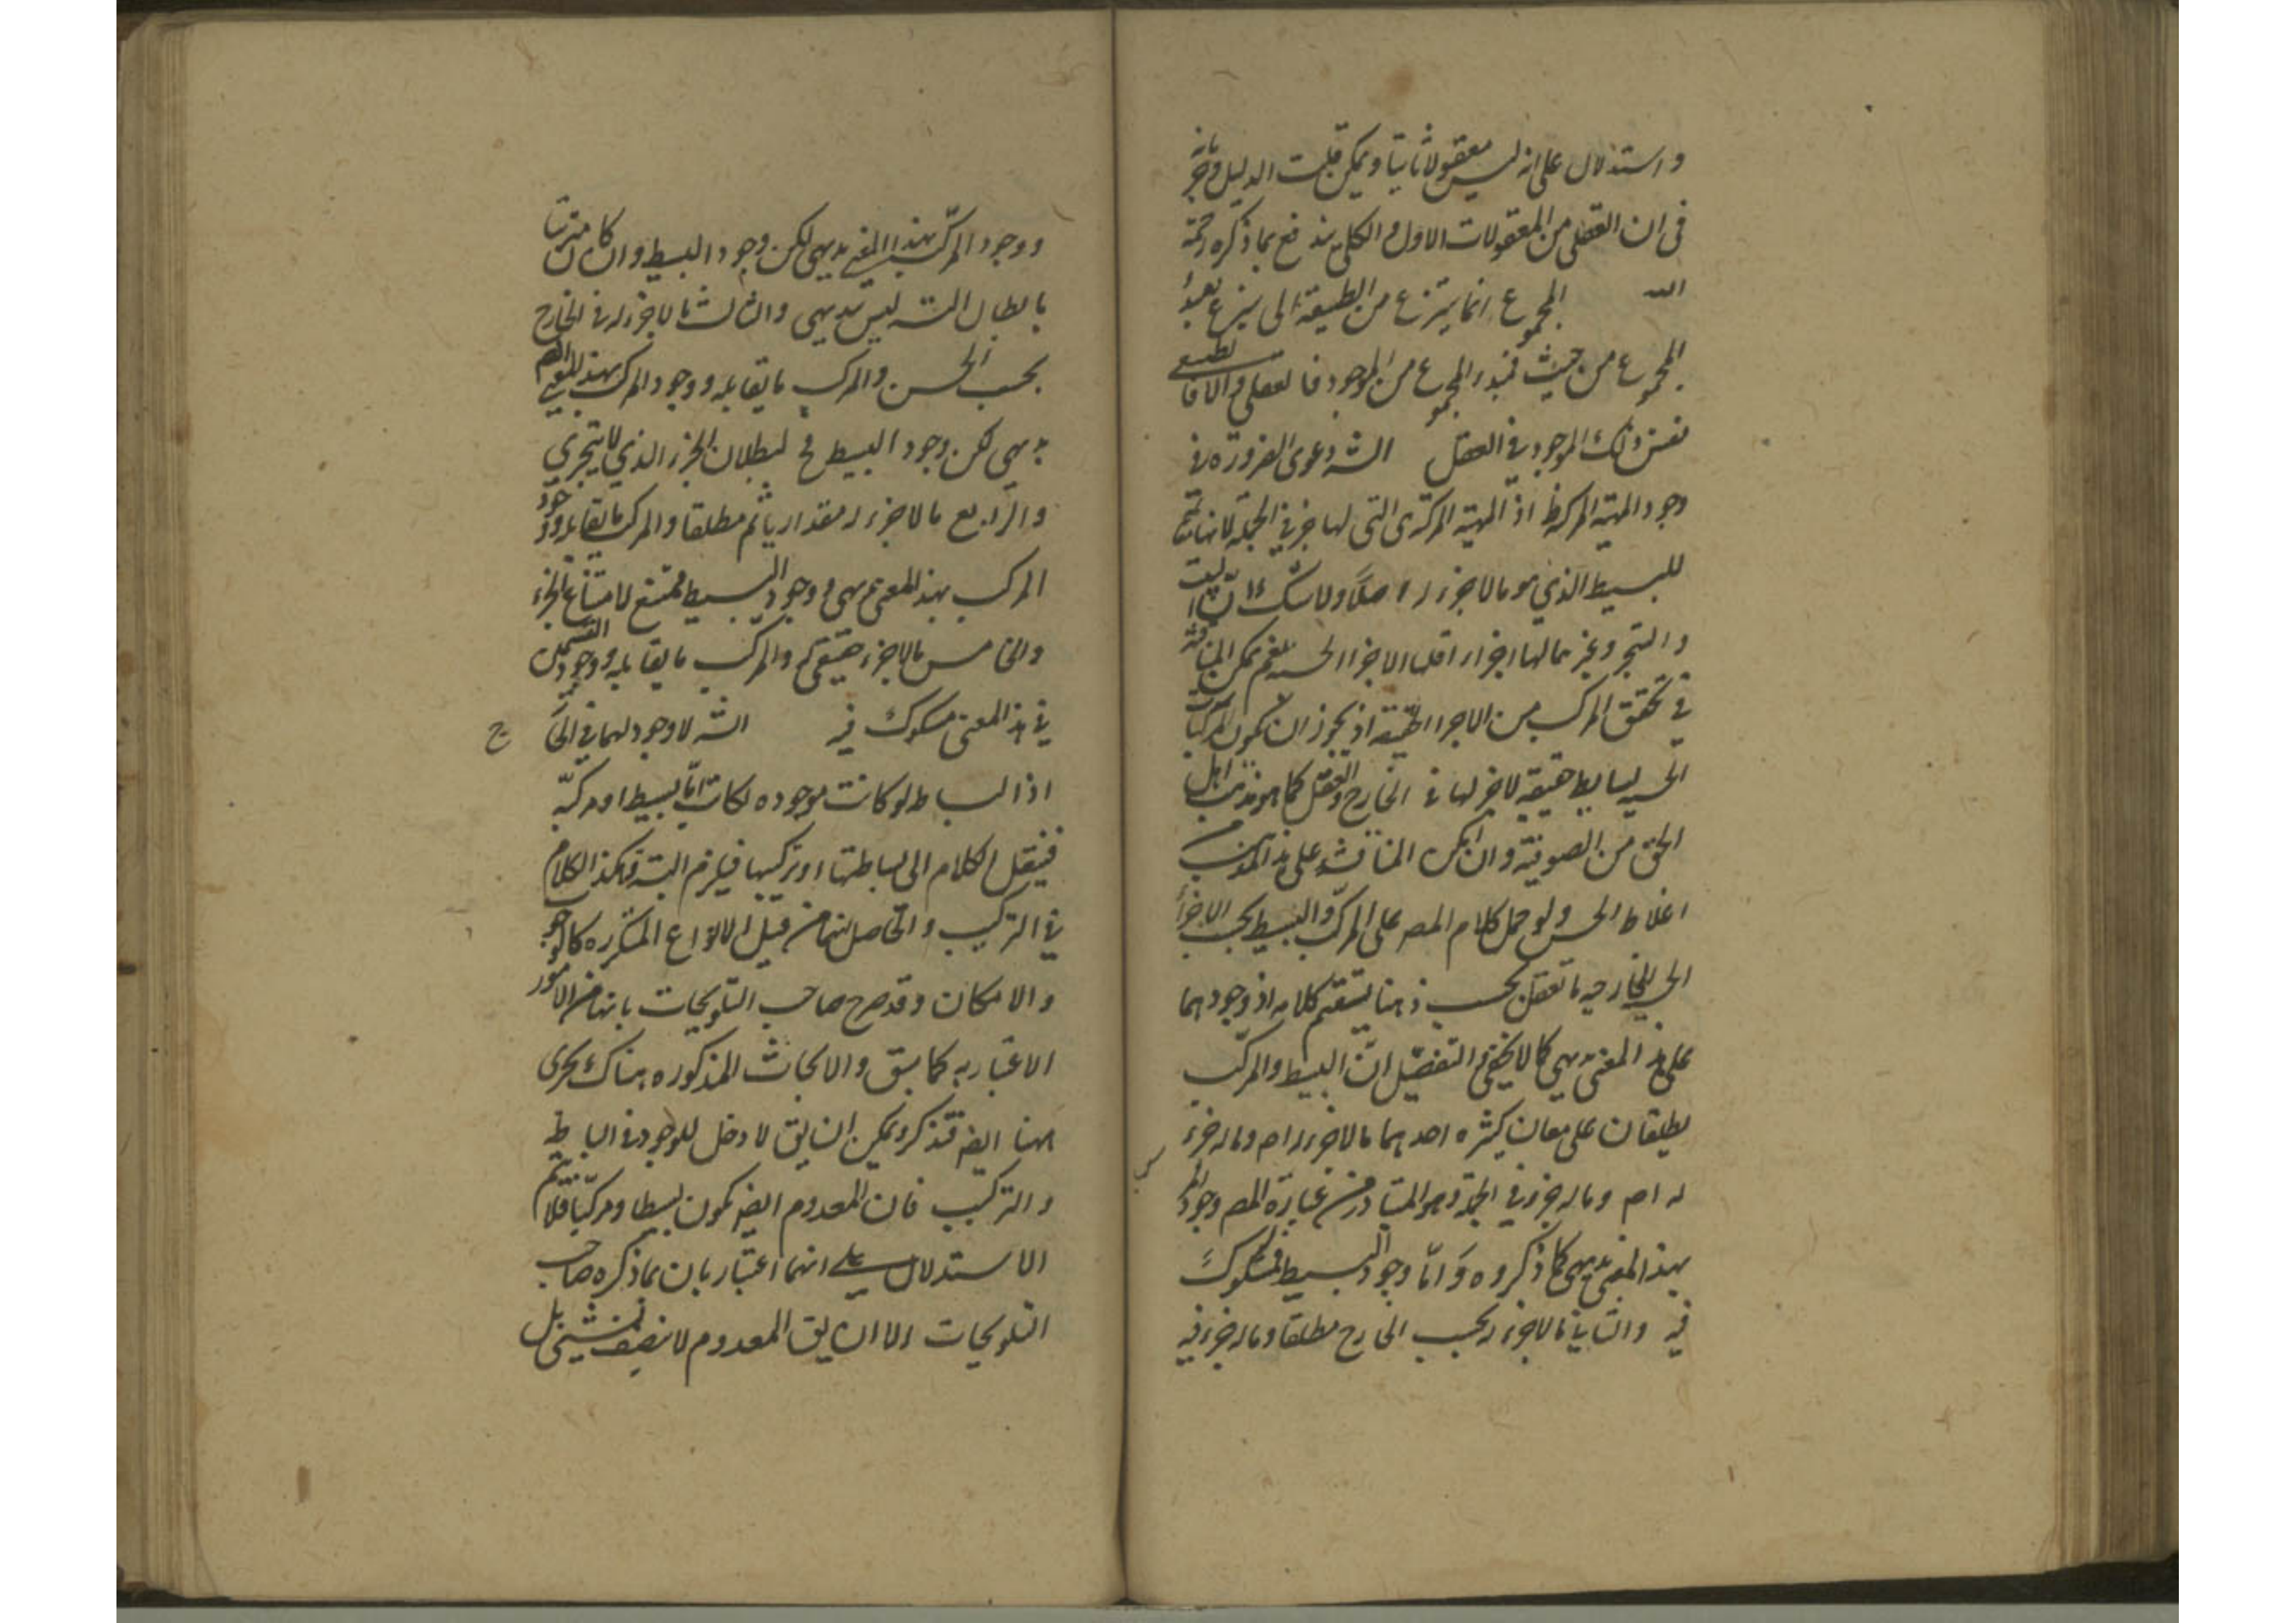 واستدلال على انه ليس معقولا ثانيا ويمكن قلب الدليل
فى ان العقلى من المعقولات الاول والكلى يندفع بما ذكره رحمه
الله المجموع انما ينتزع من الطبيعة التى ينزع
المجموع من حيث المجموع من الموجود فالعقلى والا
نفس ذلك الموجود فى العقل الشه دعوى الضرورة فى
وجود المهية المركبة اذ المهية المركبة هى التى لها جزء فى الجملة لانها
للبسيط الذى هو مالا جزء له اصلا ولا شك ان البيت
والشجر وغيرهما لها اجزاء اقلها الاجزاء الحسية نعم يمكن المناقشة
فى تحقق المركب من الاجزاء اذ يجوز ان يكون
الحسية بسايط حقيقة لا جزء لها فى الخارج والعقل كما هو مذهب اهل
الحق من الصوفية وان امكن المناقشة على هذا المذهب
اغلاط الحس ولو حمل كلام المص على المركب والبسيط بحسب الاجزاء
الخارجية ما تعقل بحسب ذهنا يستقيم كلامه اذ وجودهما
على هذا المعنى بديهى كما لا يخفى والتفصيل ان البسيط والمركب
يطلقان على معان كثيره احدهما مالا جزء له اصم وماله جزء
له اصم وماله جزء فى الجملة وهو المتبادر من عبارة المص ووجود
بهذا المعنى بديهى كما ذكروه واما وجود البسيط فمشكوك
فيه والثانى مالا جزء له بحسب الخارج مطلقا وماله جزء فيه
ووجود المركب بهذا المعنى بديهى لكن وجود البسيط وان كان
بابطال التسه ليس ببديهى والثالث مالا جزء له فى الخارج
بحسب الحس والمركب ما يقابله ووجود المركب بهذا المعنى
بديهى لكن وجود البسيط لبطلان الجزء الذى لا يتجزى
والرابع مالا جزء له مقداريا ثم مطلقا والمركب ما يقابله ووجود
المركب بهذا المعنى بديهى ووجود البسيط ممتنع لامتناع الجزء
والخامس مالا جزء حقيقى له والمركب ما يقابله ووجود القسمين
فى هذا المعنى مشكوك فيه الشه لا وجود لهما فى الخا
ج
اذ البساطة لو كانت موجوده لكانت اما بسيطا او مركبة
فينقل الكلام الى بساطتها او تركيبها فيلزم التسه وهكذا الكلام
فى التركيب والحاصل انهما من قبيل الانواع المتكرره كالوجوب
والامكان وقد صرح صاحب التلويحات بانهما من الامور
الاعتباريه كما سبق والابحاث المذكوره هناك يجرى
ههنا ايضا فتذكر ويمكن ان يق لا دخل للوجود فى البساطة
والتركيب فان المعدوم ايضا يكون بسيطا ومركبا فلا يتم
الاستدلال على انهما اعتباريان بما ذكره صاحب
التلويحات الا ان يق المعدوم لا يتصف بشىء بل